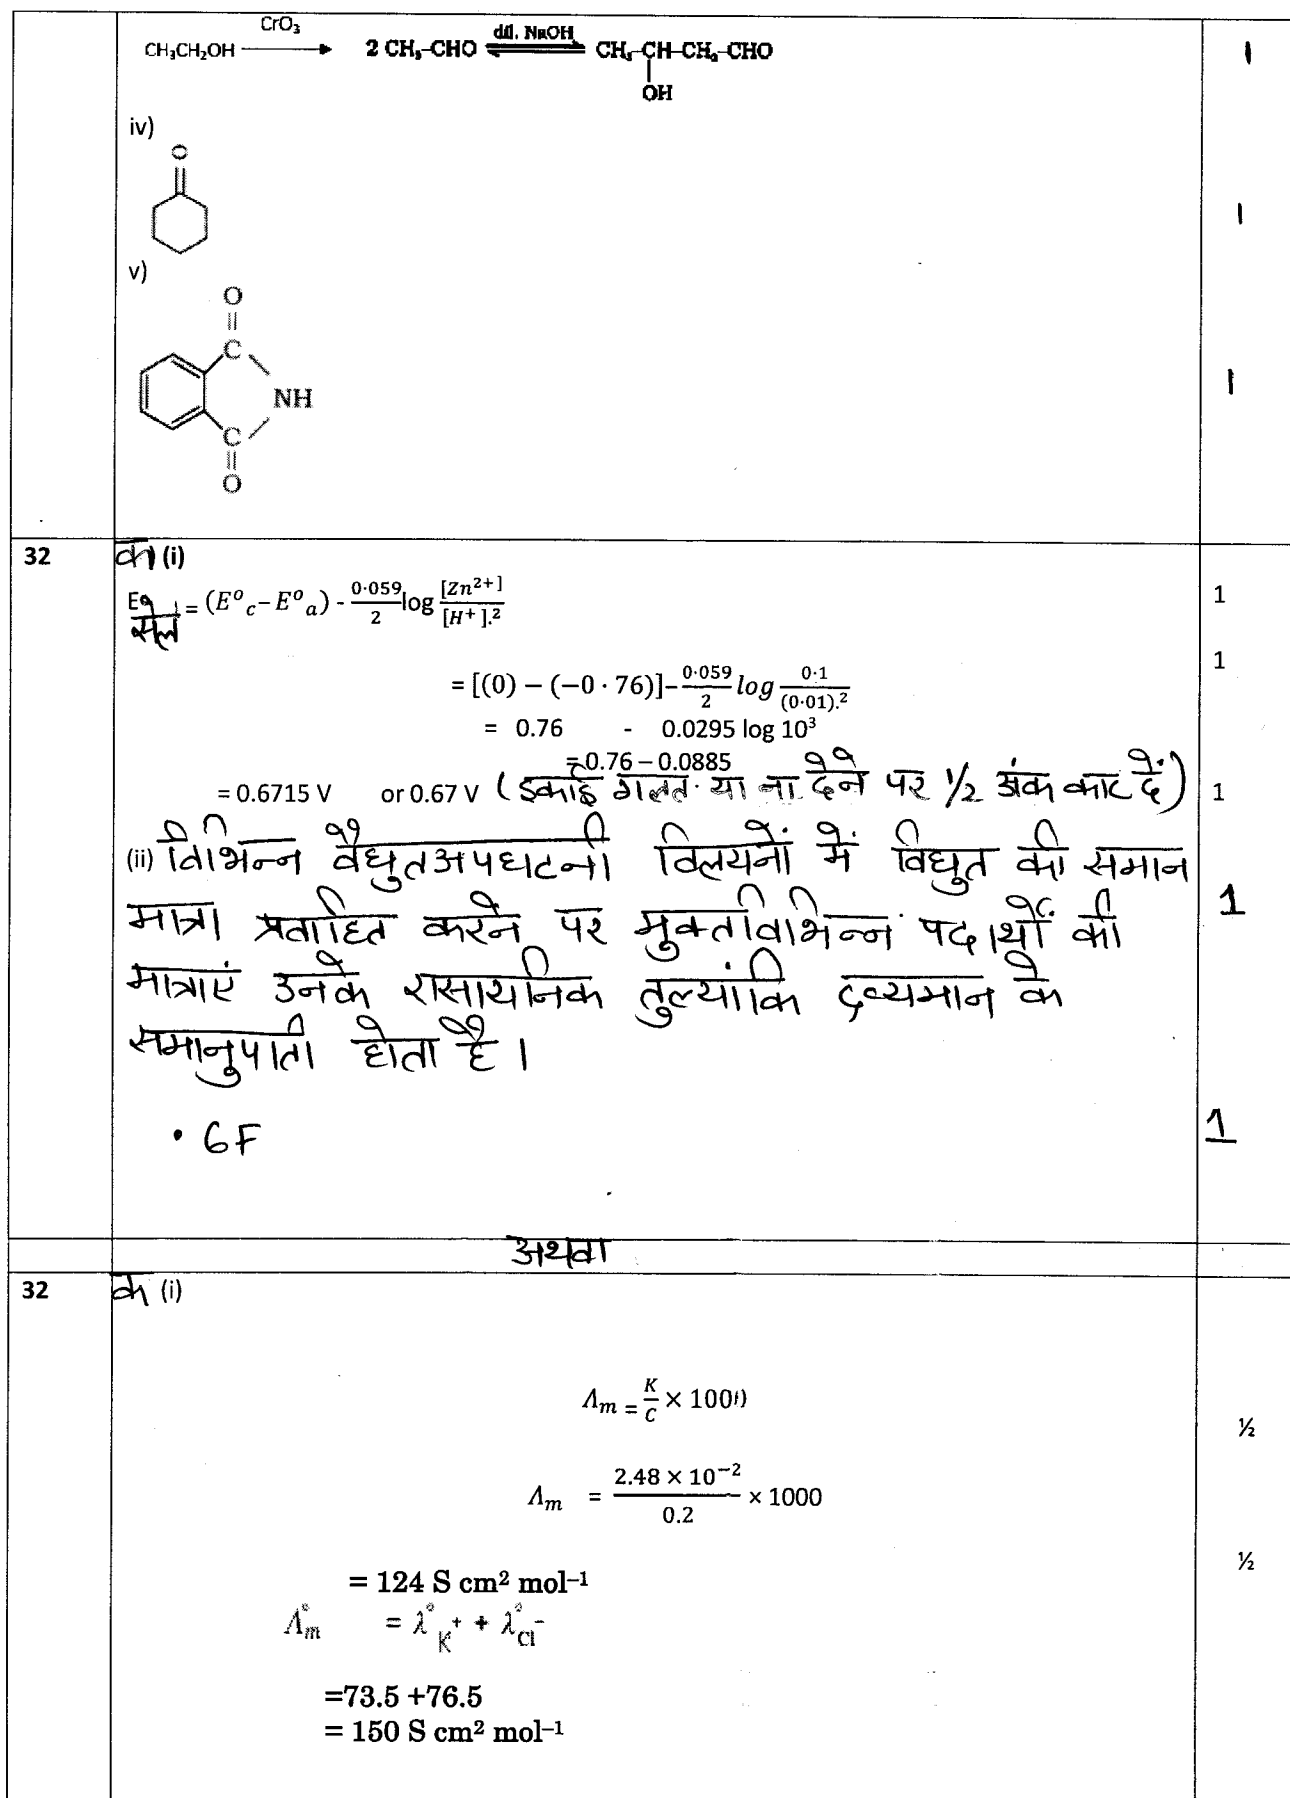 CH₃CH₂OH —CrO₃→ 2 CH₃-CHO ⇌ dil. NaOH CH₃-CH-CH₂-CHO 1
OH
iv)
O
1
v)
O
C
NH 1
C
O
32 क (i)
E⁰ सेल = (E⁰c − E⁰a) - 0·059/2 log [Zn²⁺]/[H⁺].² 1
1
= [(0) − (−0·76)] − 0·059/2 log 0·1/(0·01).²
= 0.76 - 0.0295 log 10³
= 0.76 – 0.0885
= 0.6715 V or 0.67 V (इकाई गलत या ना देने पर 1/2 अंक काट दें) 1
(ii) विभिन्न वैधुतअपघटनी विलयनों में विधुत की समान
मात्रा प्रवाहित करने पर मुक्त विभिन्न पदार्थों की 1
मात्राएं उनके रासायनिक तुल्यांकि द्रव्यमान के
समानुपाती होता है ।
• 6F 1
अथवा
32 क (i)
Λm = K/C × 1000 ½
Λm = 2.48 × 10⁻²/0.2 × 1000
½
= 124 S cm² mol⁻¹
Λ°m = λ°K⁺ + λ°Cl⁻
=73.5 +76.5
= 150 S cm² mol⁻¹